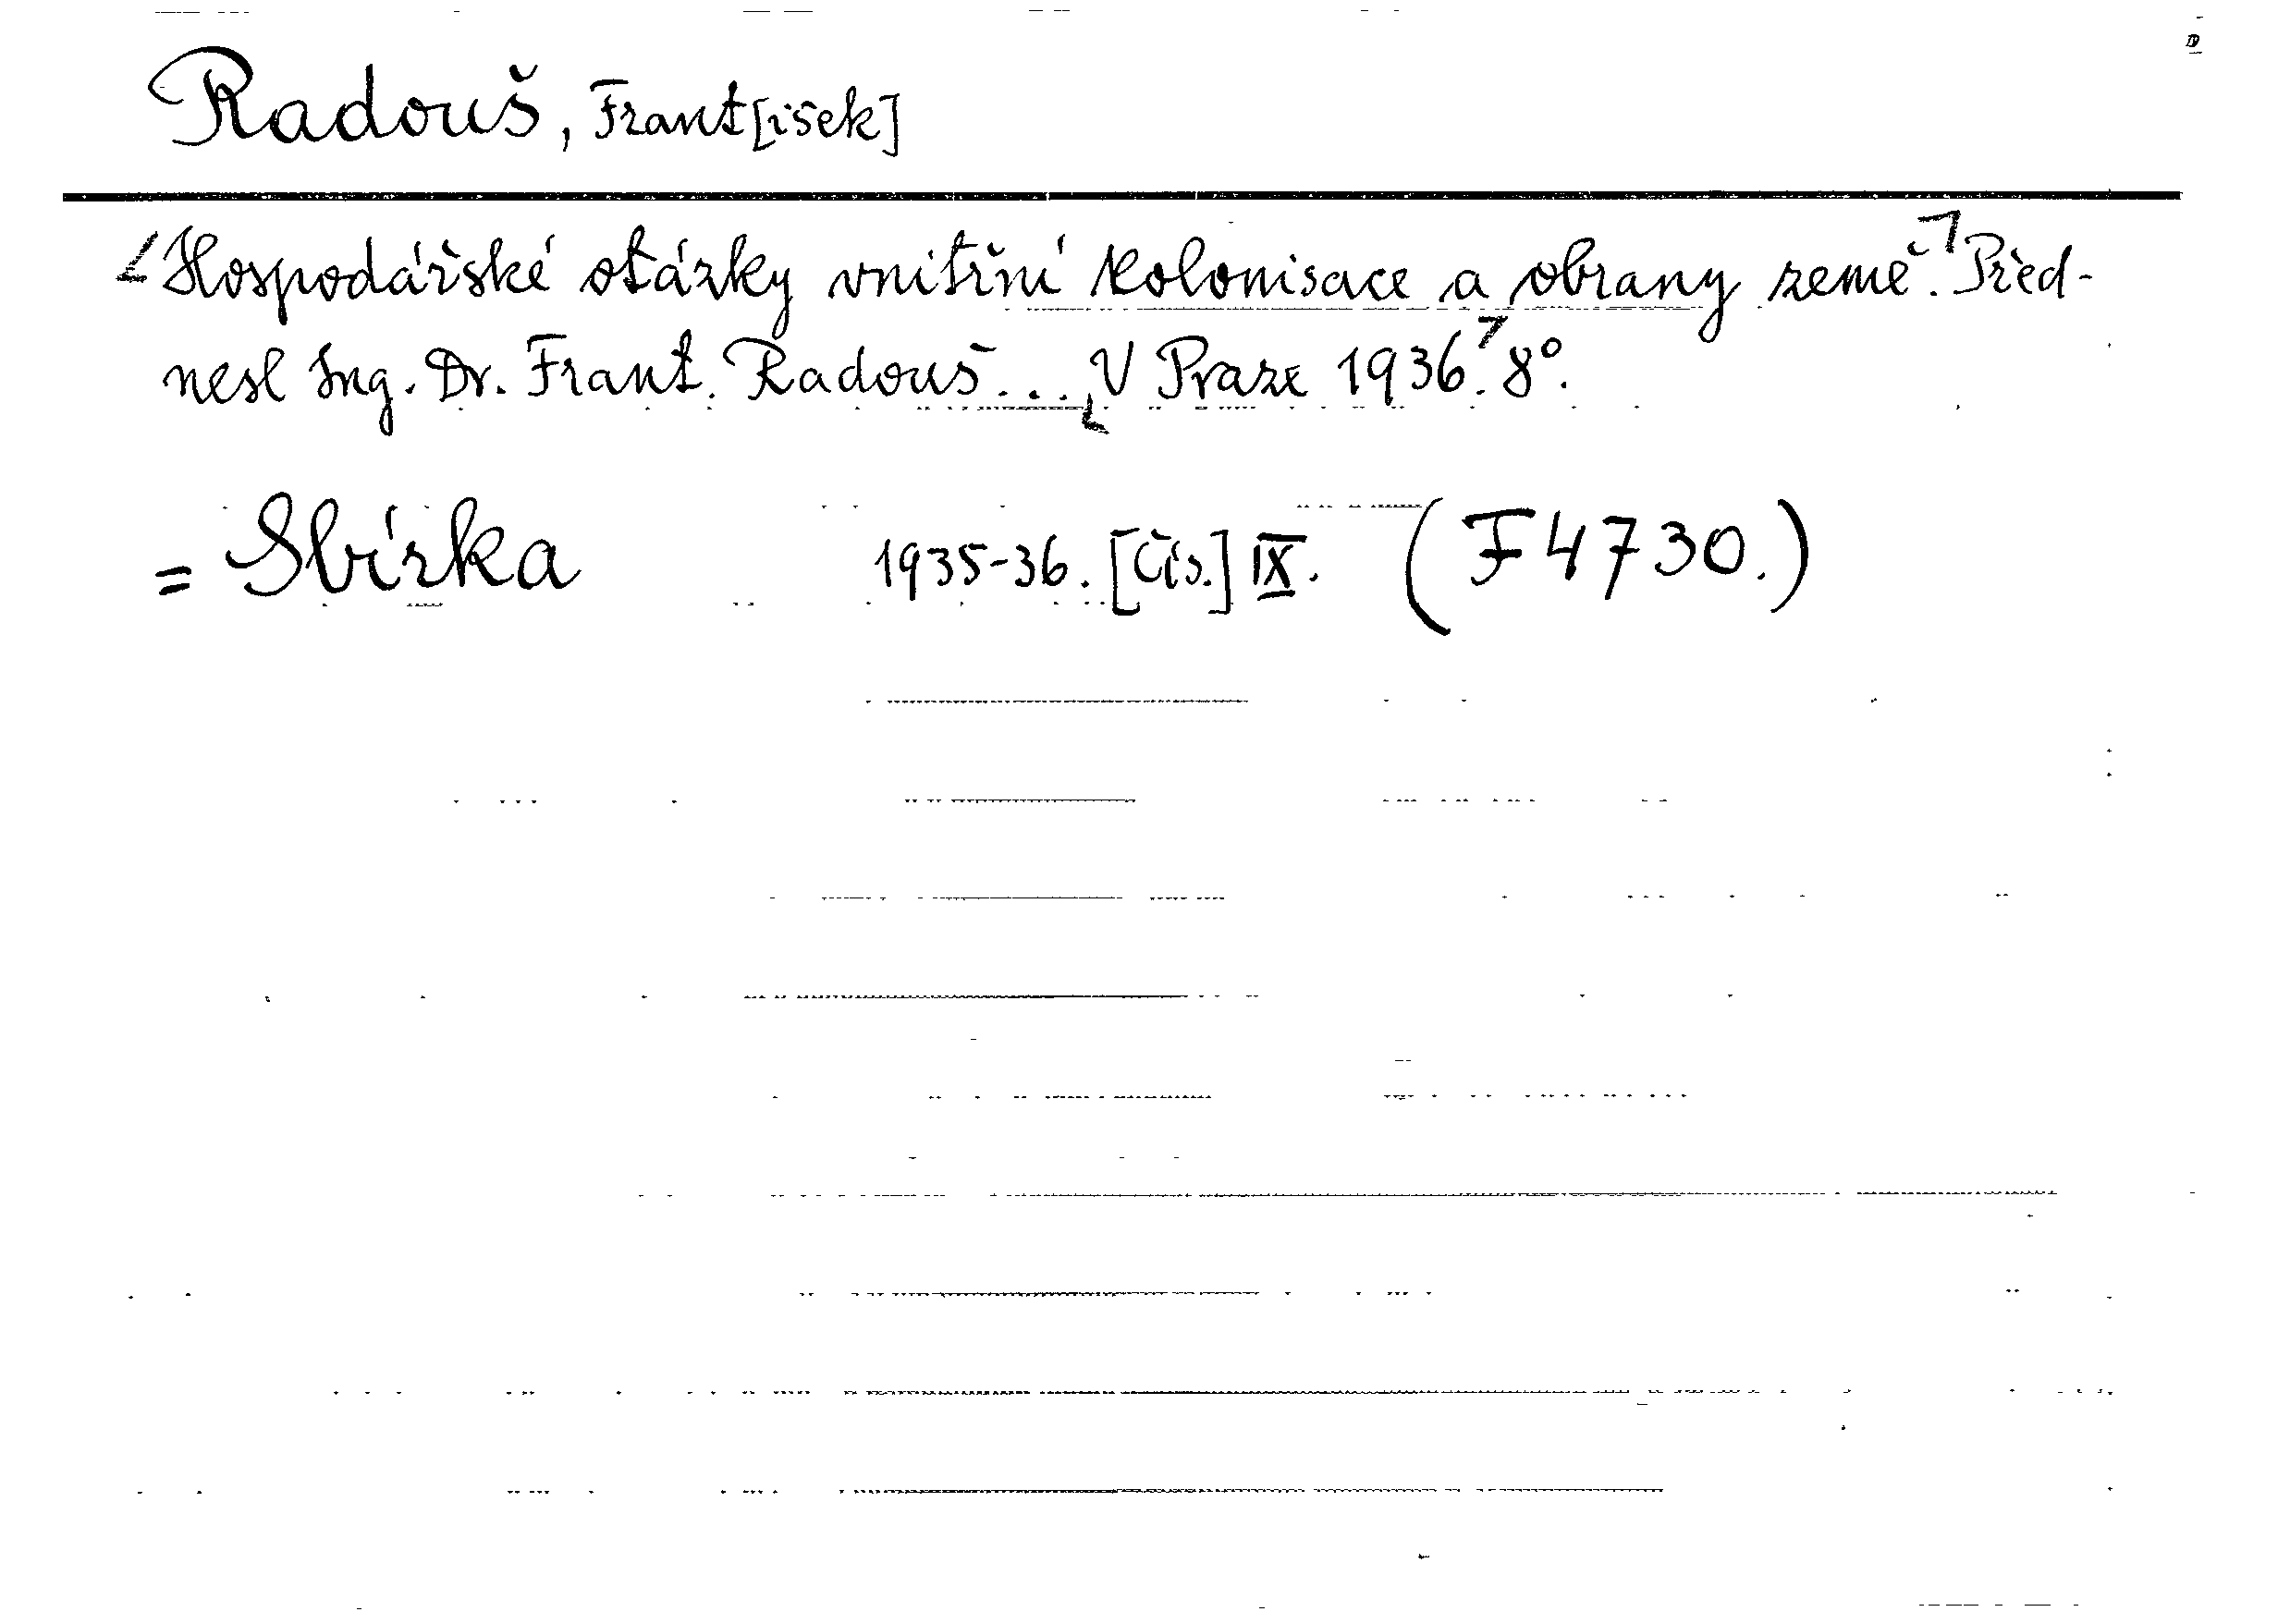 Radouš, Frant[išek]
Hospodářské otázky vnitřní kolonisace a obrany země. Před-
nesl Ing. Dr. Frant. Radouš... V Praze 1936. 8°.
= Sbírka 1935-36. [Čís.] IX. (F 4730.)